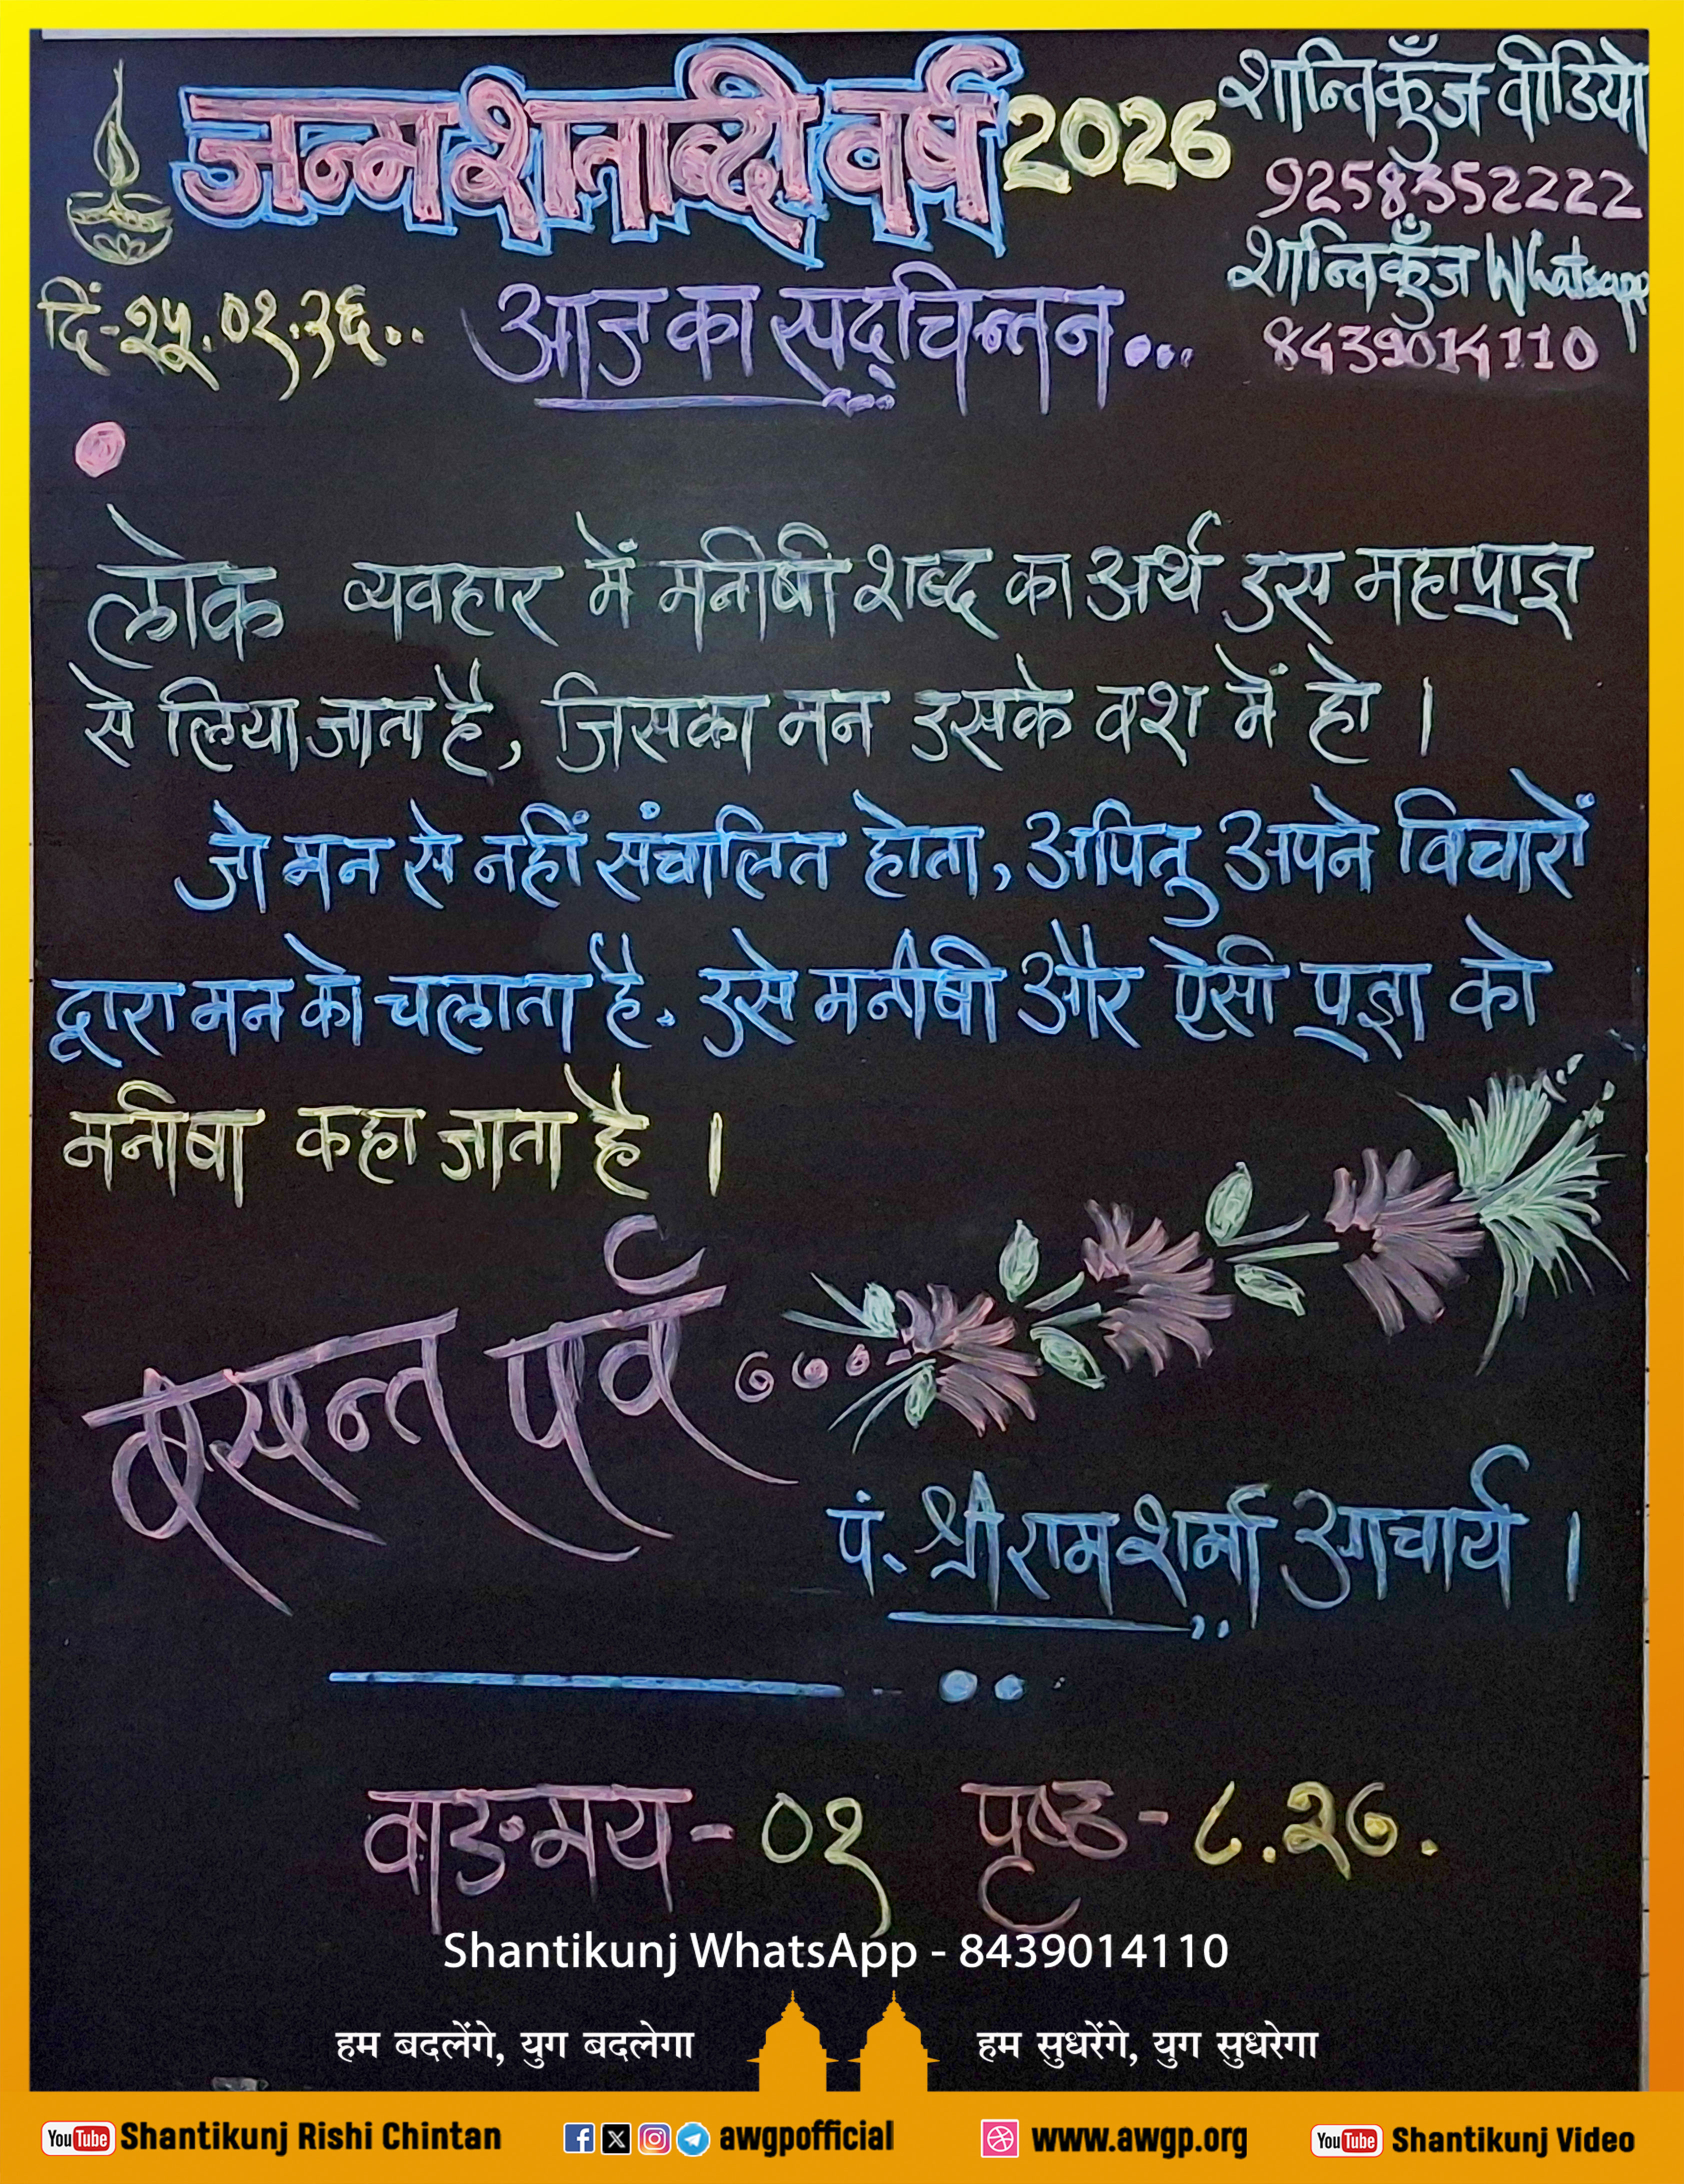 जन्म शताब्दी वर्ष 2026
शान्तिकुँज वीडियो
9258352222
शान्तिकुँज Whatsapp
8439014110
दिं-२५.०१.२६..
आज का सद्चिन्तन...
लोक व्यवहार में मनीषी शब्द का अर्थ उस महाप्राज्ञ
से लिया जाता है, जिसका मन उसके वश में हो ।
जो मन से नहीं संचालित होता, अपितु अपने विचारों
द्वारा मन को चलाता है. उसे मनीषी और ऐसी प्रज्ञा को
मनीषा कहा जाता है ।
बसन्त पर्व
पं. श्रीराम शर्मा आचार्य ।
वाङमय - ०१ पृष्ठ - ८.२७.
Shantikunj WhatsApp - 8439014110
हम बदलेंगे, युग बदलेगा हम सुधरेंगे, युग सुधरेगा
YouTube Shantikunj Rishi Chintan awgpofficial www.awgp.org YouTube Shantikunj Video